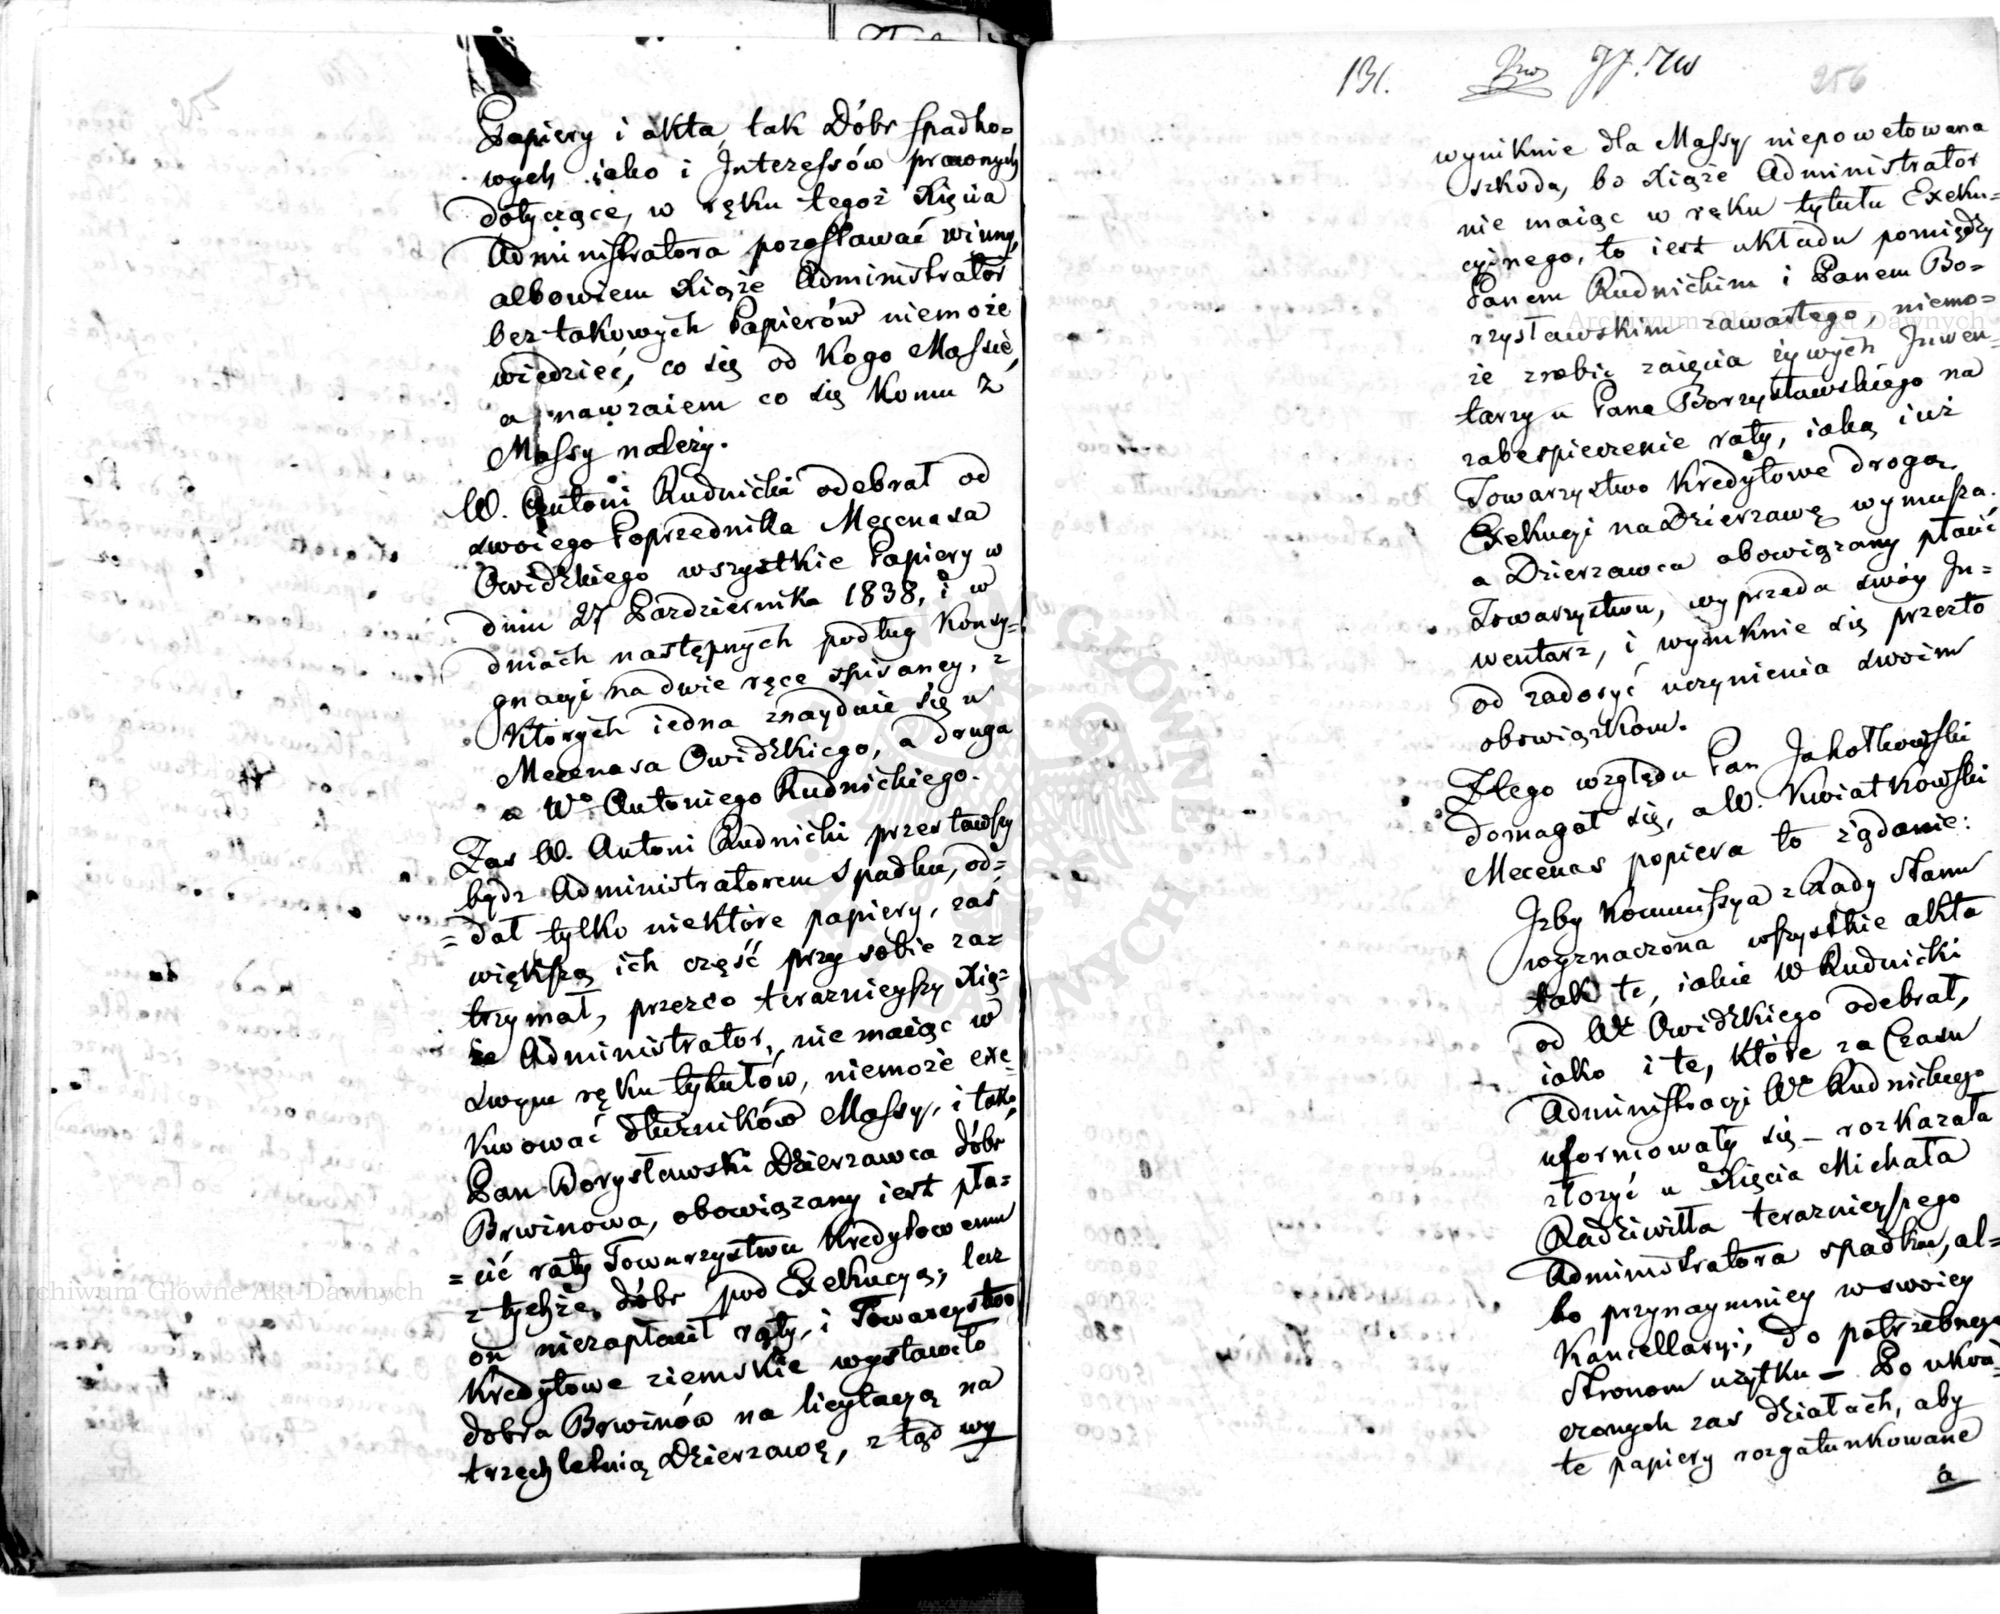 Papiery i akta, tak Dóbr spadko=
wych iako i Interessów prawnych
dotyczące, w ręku tegoż Xięcia
Administratora pozostawać winny,
albowiem Xiąże Administrator
bez takowych Papierów niemoże
wiedzieć, co się od Kogo Massie,
a nawzaiem co się Komu z
Massy należy.
W. Antoni Rudnicki odebrał od
swoiego Poprzednika Mecenasa
Owidzkiego wszystkie Papiery w
dniu 27 Pazdziernika 1838, i w
dniach następnych podług Konsy=
gnacyi na dwie ręce spisaney, z
Których iedna znayduie się u
Mecenasa Owidzkiego, a druga
u Wo Antoniego Rudnickiego.
Zas W. Antoni Rudnicki przestawszy
bydz Administratorem Spadku, od=
=dał tylko niektóre papiery, zaś
większą ich część przy sobie za=
trzymał, przezco teraznieyszy Xią=
że Administrator, nie maiąc w
swym ręku tytułów, niemoże exe=
kwować dłużników Massy, i tak
Pan Borysławski Dzierzawca dóbr
Brwinowa, obowiązany iest pła=
=cić raty Towarzystwu Kredytowemu
z tychże dóbr pod Exekucyą; lecz
on niezapłacił raty, i Towarzystwo
Kredytowe ziemskie wystawiło
dobra Brwinów na licytacyą na
trzechletnią Dzierzawę, z tąd wy
131. JJ. ZW 256
wyniknie dla Massy niepowetowana
szkoda, bo Xiąże Administrator
nie maiąc w ręku tytułu Exeku=
cyinego, to iest układu pomiędzy
Panem Rudnickim i Panem Bo=
rzysławskim zawartego, niemo=
że zrobić zaięcia żywych Inwen=
tarzy u Pana Borzysławskiego na
zabezpieczenie raty, iaką iuż
Towarzystwo Kredytowe drogą
Exekucyi na Dzierzawę wymusza.
a Dzierzawca obowiązany płacić
Towarzystwu, wyprzeda swóy In=
wentarz, i wymknie się przezto
od zadosyć uczynienia swoim
obowiązkom.
Z tego względu Pan Jakotkowski
domagał się, a W. Kwiatkowski
Mecenas popiera to żądanie:
Jżby Kommissya z Rady Stanu
wyznaczona wszystkie akta
tak te, iakie W Rudnicki
od Wo Owidzkiego odebrał,
iako i te, Które za Czasu
Administracyi Wo Rudnickiego
uformowały się – rozkazała
złożyć u Xięcia Michała
Radziwiłła teraznieyszego
Administratora spadku, al=
bo przynaymniey w swoiey
Kancellaryi, do potrzebnego
Stronom użytku – Po ukoń=
czonych zas działach, aby
te papiery rozgatunkowane
a
Archiwum Główne Akt Dawnych
Archiwum Główne Akt Dawnych
ARCHIWUM GŁÓWNE AKT DAWNYCH